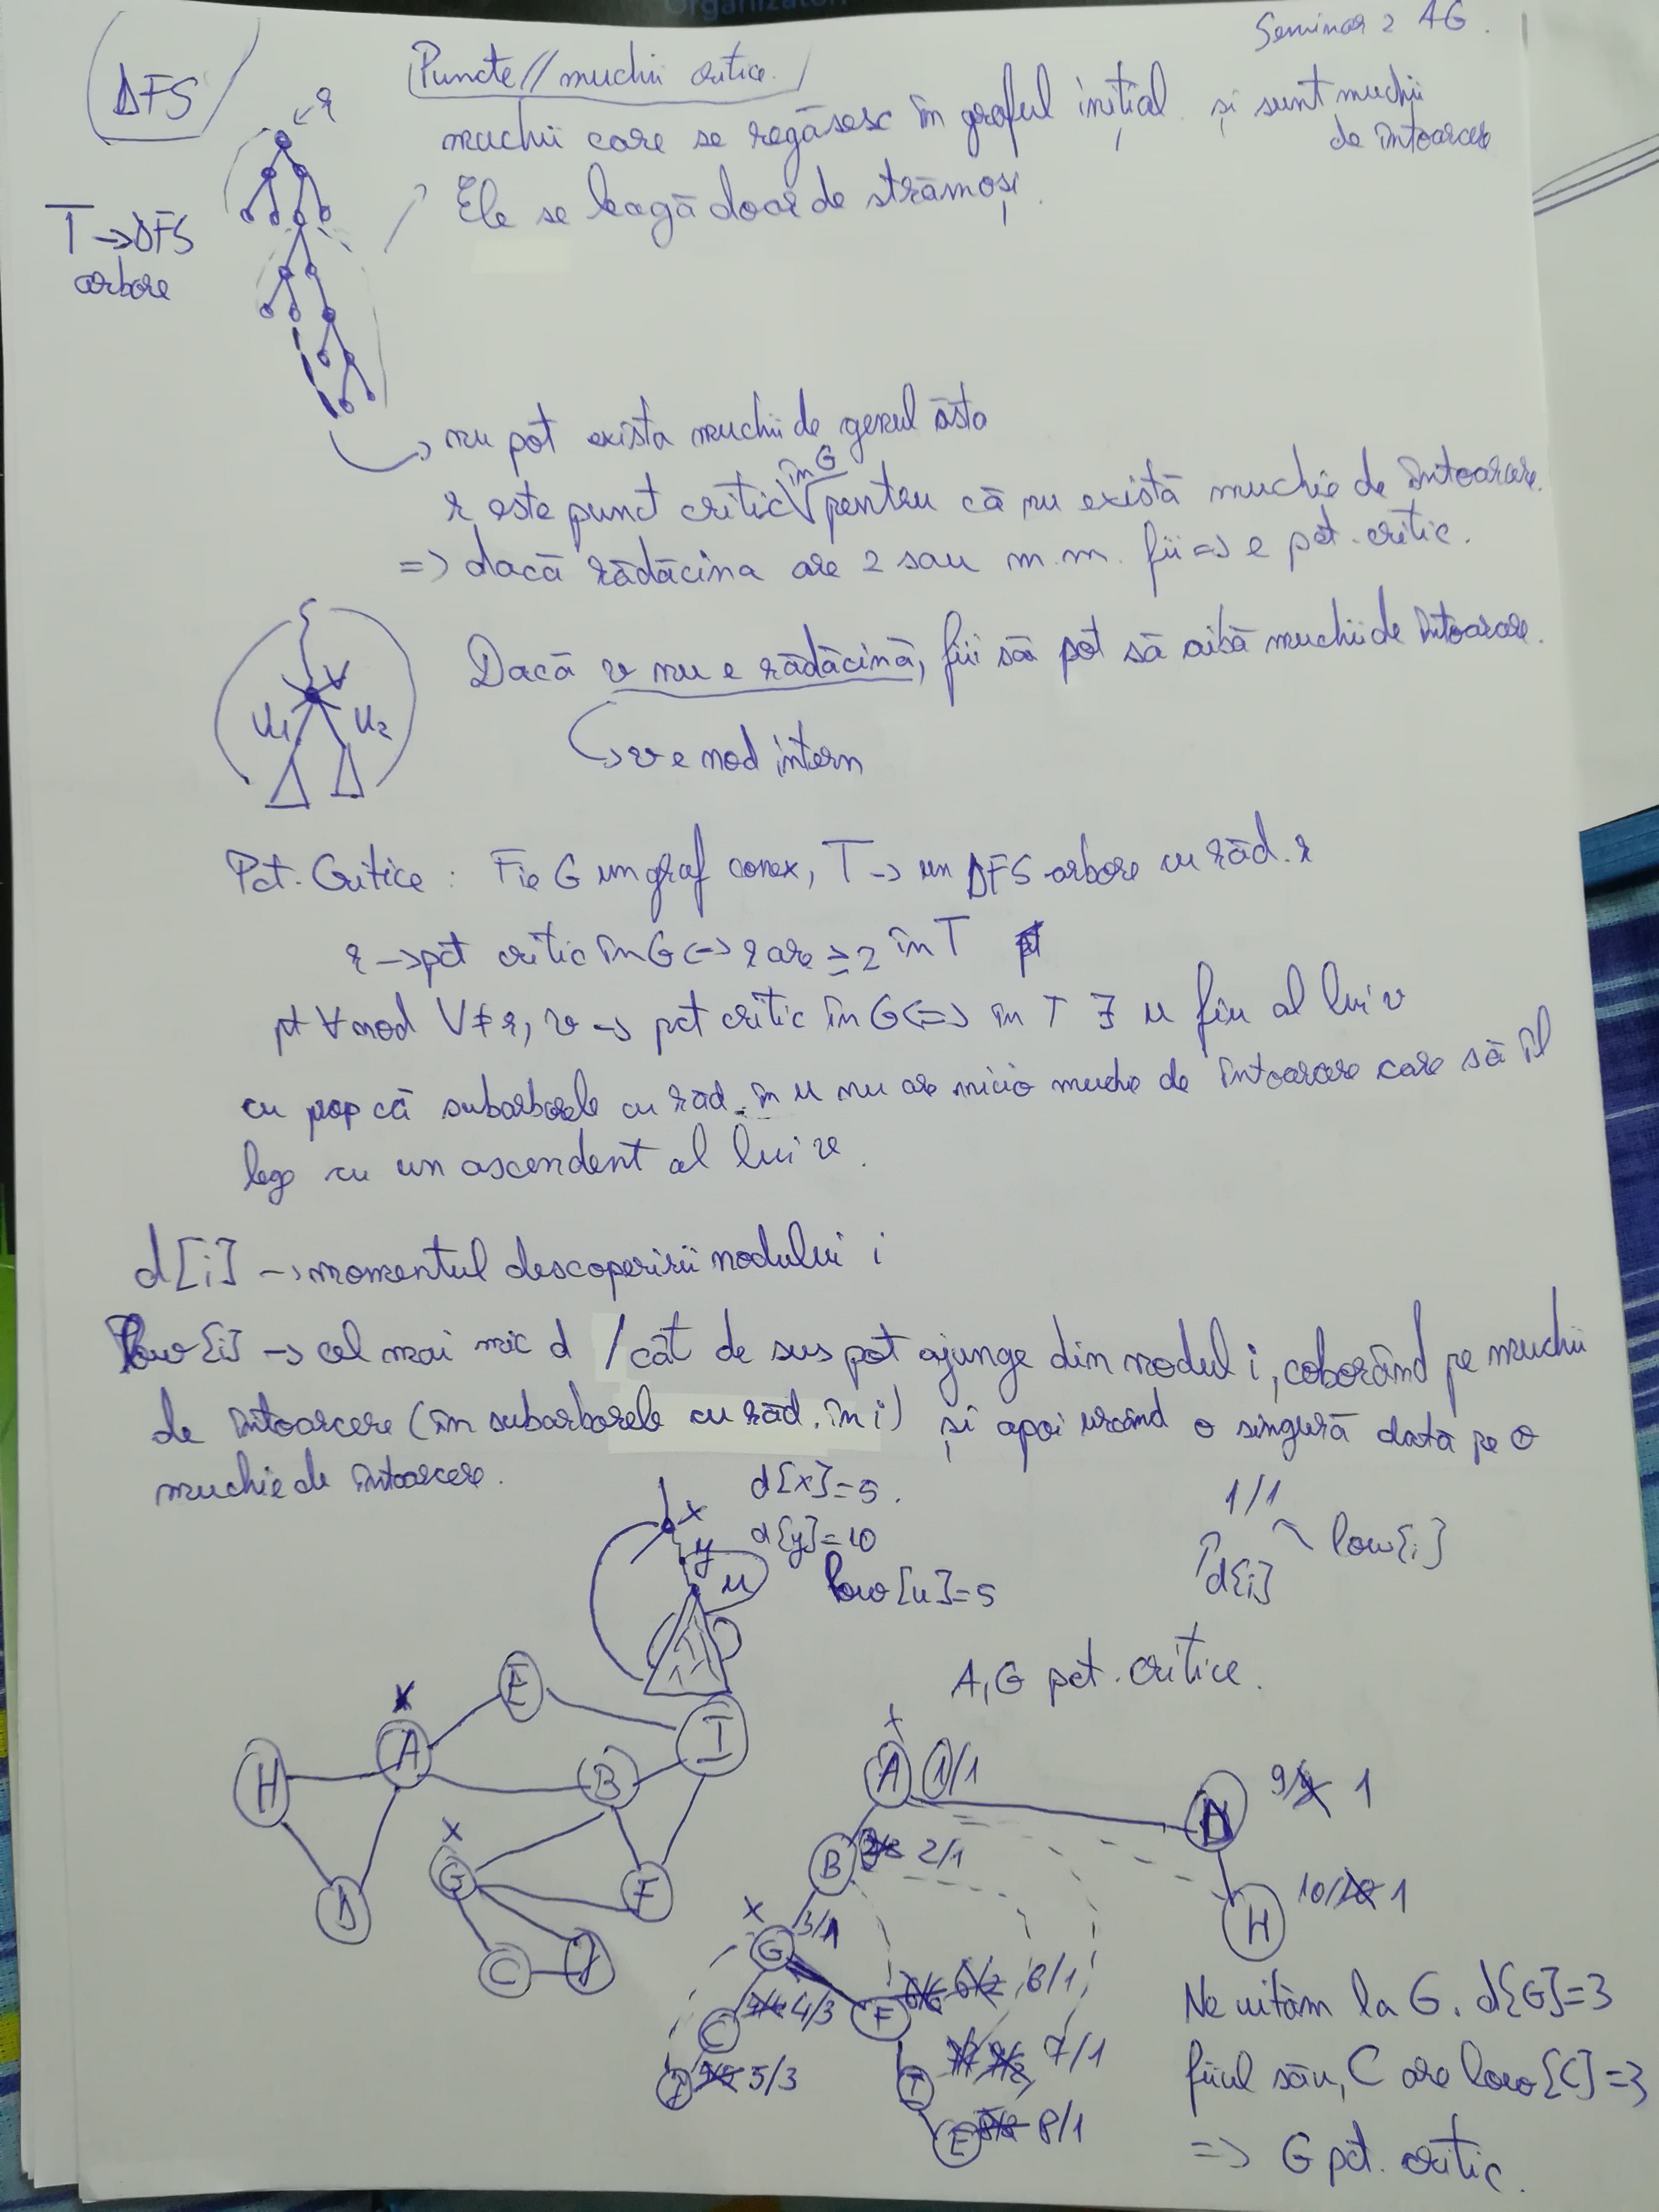 Organizator
Seminar 2 AG.
DFS
Puncte // muchii critice.
← r
muchii care se regăsesc în graful inițial și sunt muchii
de întoarcere
Ele se leagă doar de strămoși.
T → DFS
arbore
nu pot exista muchii de genul ăsta
în G
r este punct critic pentru că nu există muchie de întoarcere.
=> dacă rădăcina are 2 sau m.m. fii => e pct. critic.
Dacă v nu e rădăcină, fiii să pot să aibă muchii de întoarcere.
v
u1 u2
→ v e nod intern
Pct. Critice : Fie G un graf conex, T → un DFS arbore cu răd. r
r → pct critic în G <=> r are ≥ 2 în T
pt ∀ nod V ≠ r, v → pct critic în G <=> în T ∃ u fiu al lui v
cu prop că subarborele cu răd. în u nu are nicio muchie de întoarcere care să îl
lege cu un ascendent al lui v.
d[i] → momentul descoperirii nodului i
low[i] → cel mai mic d / cât de sus pot ajunge din nodul i, coborând pe muchii
de întoarcere (în subarborele cu răd. în i) și apoi urcând o singură dată pe o
muchie de întoarcere.
x
y
u
d[x]=5.
d[y]=10
low[u]=5
1/1
d[i]
low[i]
A,G pct. critice.
x
A
E
I
H
B
x
G
F
D
C
J
x
A 1/1
D 9/ 1
B 2/1
H 10/ 1
x
G 3/1
C 4/3
F 6/1
J 5/3
I 7/1
E 8/1
Ne uităm la G. d[G]=3
fiul său, C are low[C]=3
=> G pct. critic.